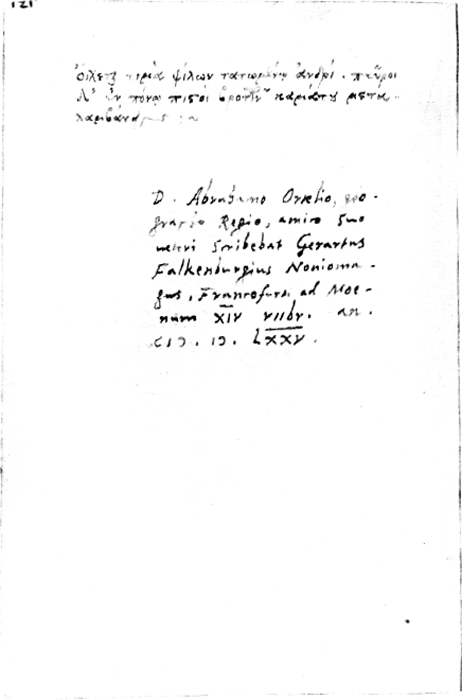 121
ψίλων ἀνδρί . παῦροι
Δ' ἐν πόνῳ πιστοὶ βροτῶν καμάτου μετα-
λαμβάνειν
D. Abrahamo Ortelio, geo-
grapho Regio, amico suo
veteri scribebat Gerartus
Falkenburgius Nouioma-
gus, Francofurti ad Moe-
num XIV VIIbr. an.
CIↃ. IↃ. LXXV.